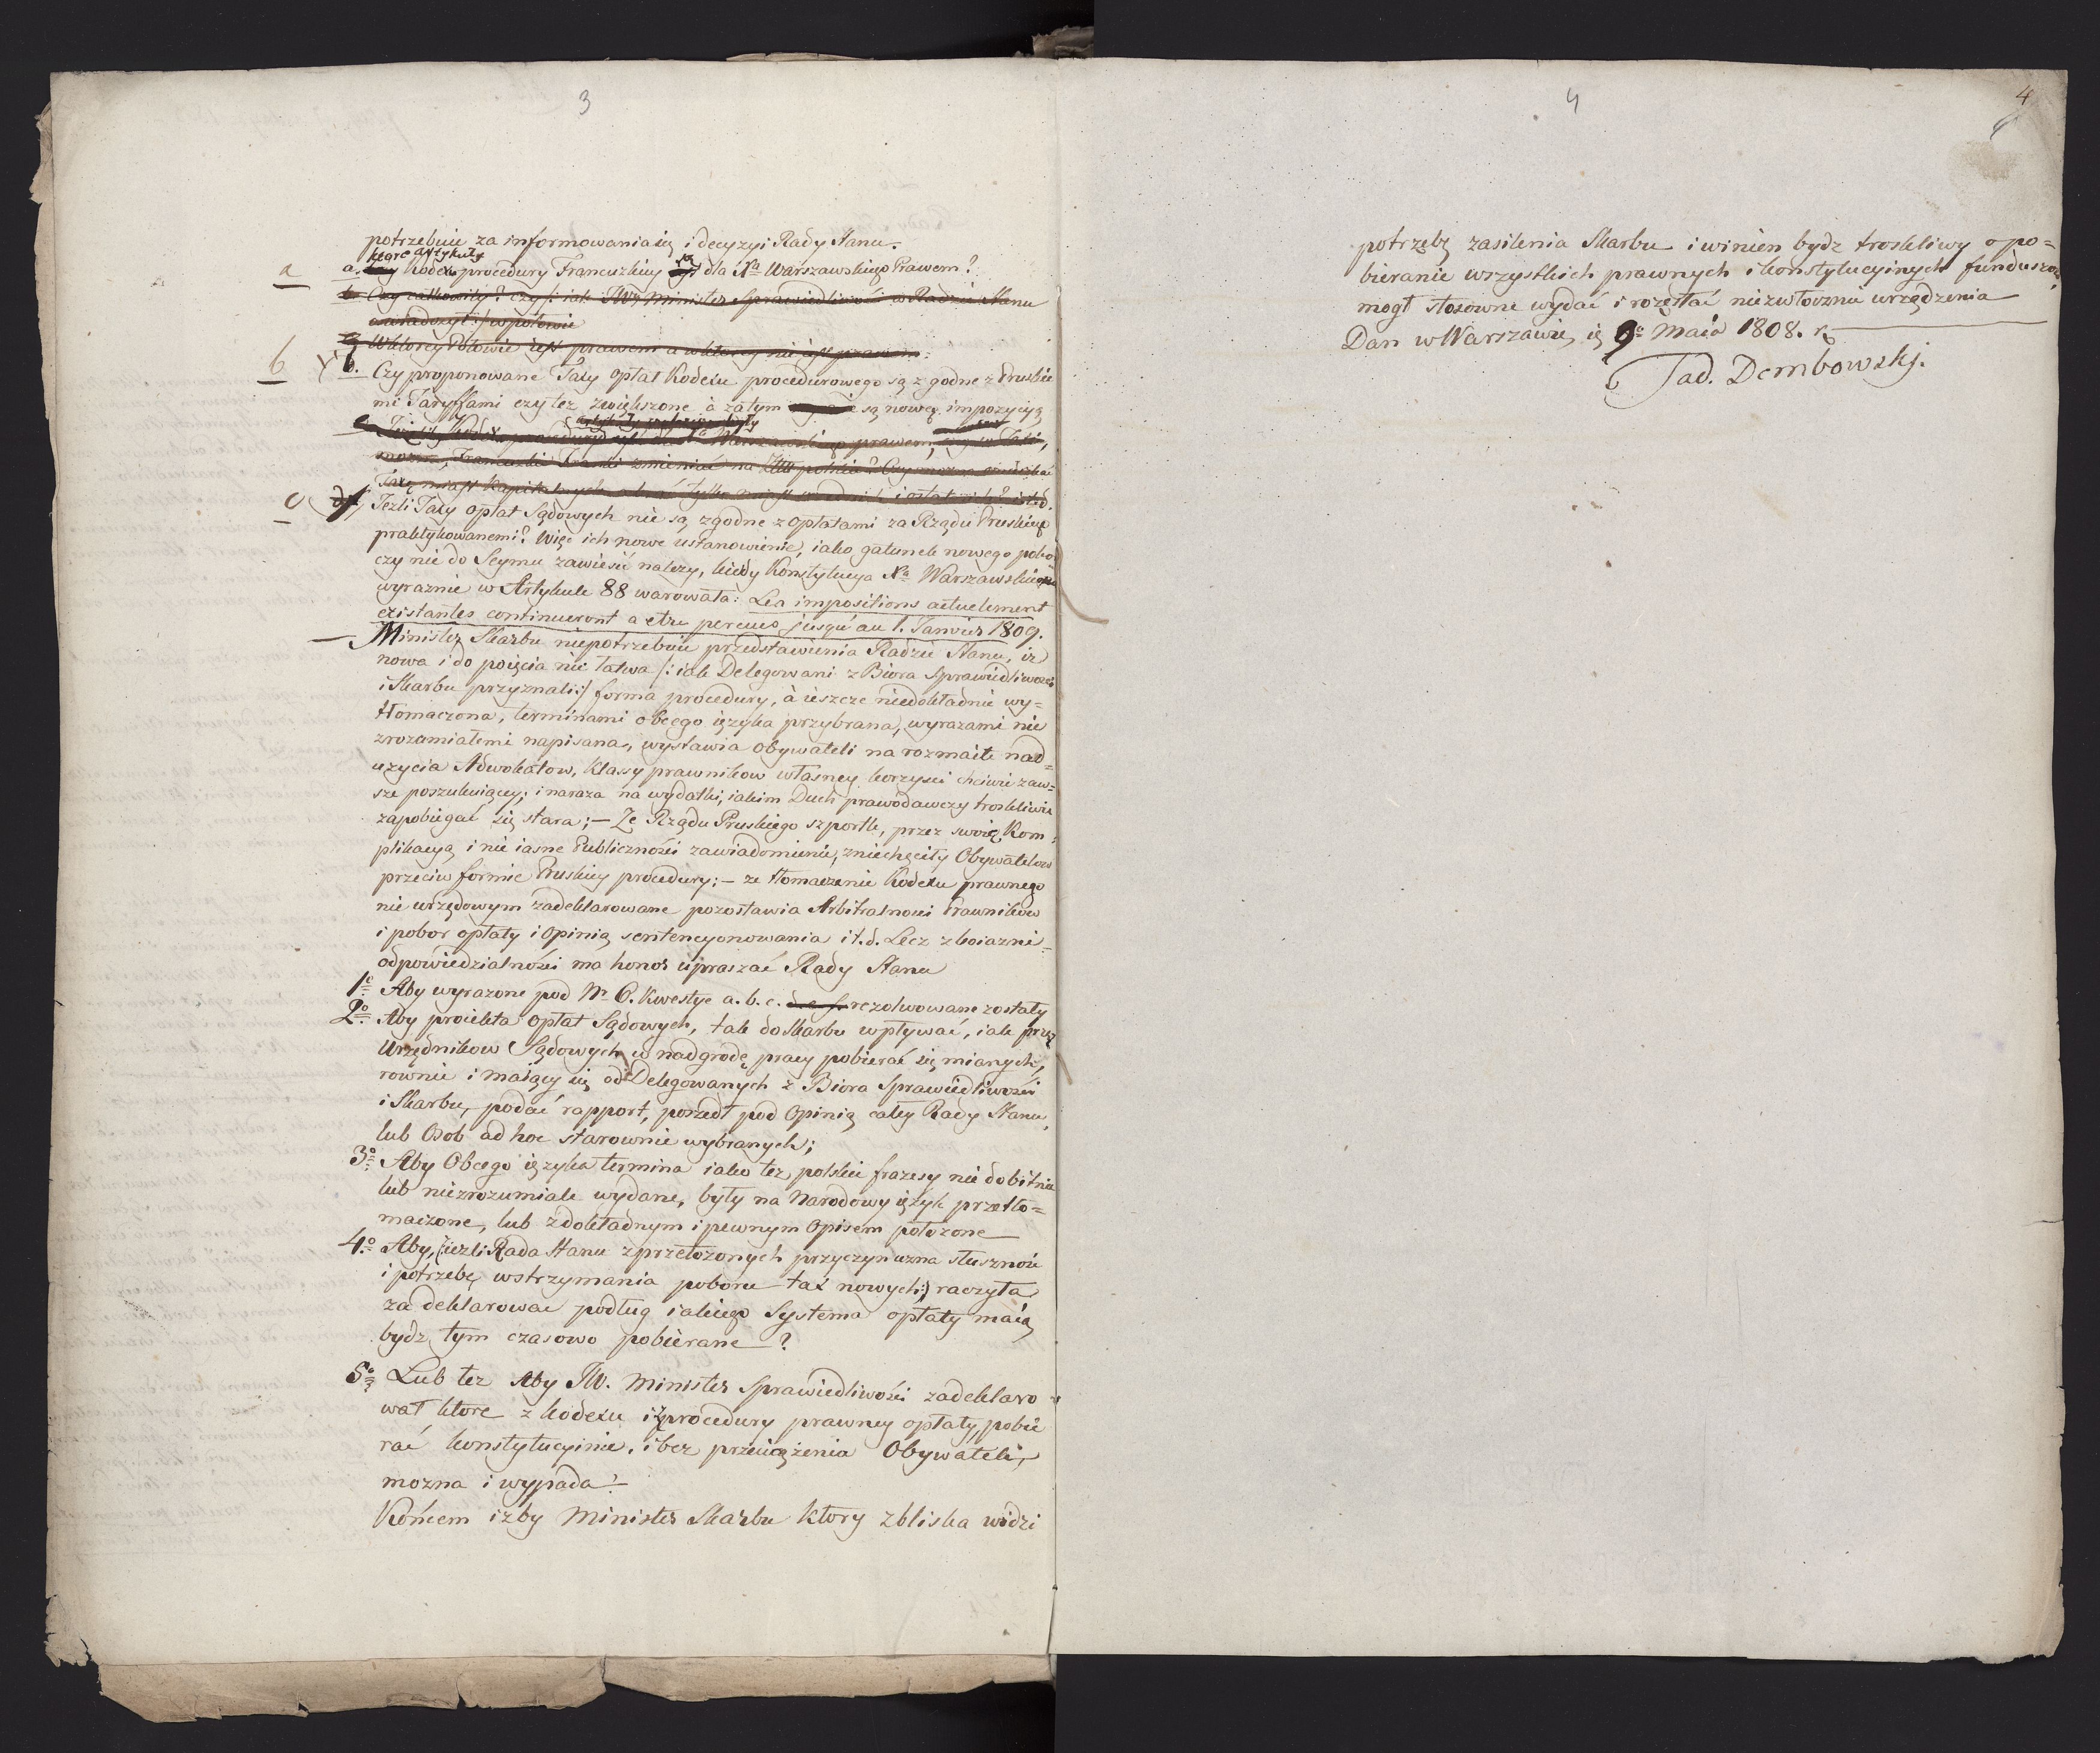 3
potrzebuie za informowania się i decyzyi Rady Stanu.
które artykuły
a a. Czy Kodex procedury Francuzkiey są dla Xa Warszawskiego Prawem?
b. Czy całkowity? czy /: iak JW. Minister Sprawiedliwości w Radzie Stanu
oswiadczył :/ w połowie
W ktorey Połowie iest prawem a w ktorey nie iest prawem
b b. Czy proponowane Taxy opłat Kodexu procedurowego są zgodne z Pruskie
mi Taryffami czy też zwiększone à zatym są nową impozycyą
Jeżeli Kodex procedury iest dla Xa Warszawskiego prawem,
można, Francuzkie Franki zmieniać na Złłt polskie? Czy można
Taxę miast Kapitalnych
c Jeżli Taxy opłat Sądowych nie są zgodne z opłatami za Rządu Pruskiego
praktykowanemi? Więc ich nowe ustanowienie, iako gatunek nowego pobo=
czy nie do Seymu zawiesić należy, kiedy Konstytucya Xa Warszawskiego
wyraznie w Artykule 88 warowała: Les impositions actuelement
existantes continueront a etre percues jusqu'au 1. Janvier 1809.
— Minister Skarbu niepotrzebuie przedstawienia Radzie Stanu, iż
nowa i do poięcia nie łatwa /: iak Delegowani z Biora Sprawiedliwości
i Skarbu przyznali :/ forma procedury, à ieszcze niedokładnie wy=
tłomaczona, terminami obcego ięzyka przybrana, wyrazami nie
zrozumiałemi napisana, wystawia Obywateli na rozmaite nad=
użycia Adwokatow, Klassy prawnikow własney korzyści chciwie zaw=
sze poszukuiącey; i naraza na wydatki, iakim Duch prawodawczy troskliwie
zapobiegać się stara; — Że Rządu Pruskiego szportle, przez swoię Kom=
plikacyą i nie iasne Publiczności zawiadomienie, zniechęciły Obywatelow
przeciw formie Pruskiey procedury; — że tłomaczenie Kodexu prawnego
nie urzędowym zadeklarowane pozostawia Arbitralności Prawnikow
i pobor opłaty i opinią sentencyonowania i t.d. Lecz z boiazni
odpowiedzialności ma honor upraszać Rady Stanu
1o Aby wyrazone pod Nr 6. Kwestye a. b. c. d. e. f. rezolwowane zostały
2o Aby proiekta opłat Sądowych, tak do Skarbu wpływać, iak przez
Urzędnikow Sądowych w nadgrodę pracy pobierać się mianych,
rownie i maiący się od Delegowanych z Biora Sprawiedliwości
i Skarbu, podać rapport, poszedł pod Opinią całey Rady Stanu,
lub Osob ad hoc starownie wybranych;
3o Aby Obcego ięzyka termina iako też, polskie frazesy nie dobitnie
lub niezrozumiale wydane, były na Narodowy ięzyk przetło=
maczone, lub z dokładnym i pewnym Opisem położone
4o Aby, /: ieżli Rada Stanu z przełożonych przyczyn uzna słuszność
i potrzebę wstrzymania poboru tax nowych :/ raczyła
zadeklarować podług iakiego Systema opłaty maią
bydz tym czasowo pobierane?
5o Lub też Aby JW. Minister Sprawiedliwości zadeklaro
wał ktore z kodexu i procedury prawney opłaty, pobie
rać konstytucyinie, i bez przeciążenia Obywateli,
można i wypada?
Końcem iżby Minister Skarbu ktory zbliska widzi
4
4
potrzebę zasilenia Skarbu i winien bydz troskliwy o po=
bieranie wszystkich prawnych i konstytucyinych funduszow,
mogł stosowne wydać i rozesłać niezwłocznie urządzenia
Dan w Warszawie, 9o Maia 1808. r.
Tad. Dembowskj.